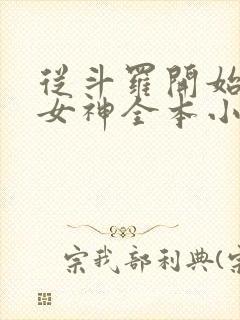 従斗羅開始
女神全本小
宗我部利典(宗